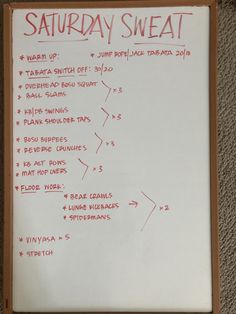 SATURDAY SWEAT
* WARM UP: * JUMP ROPE/JACK TABATA 20/10
* TABATA SWITCH OFF: 30/20
* OVERHEAD BOSU SQUAT
* BALL SLAMS
x 3
* KB/DB SWINGS
* PLANK SHOULDER TAPS
x 3
* BOSU BURPEES
* REVERSE CRUNCHES
x 3
* KB ALT ROWS
* MAT HOP OVERS
x 3
* FLOOR WORK:
* BEAR CRAWLS
* LUNGE KICKBACKS
* SPIDERMANS
→ x 2
* VINYASA x 5
* STRETCH